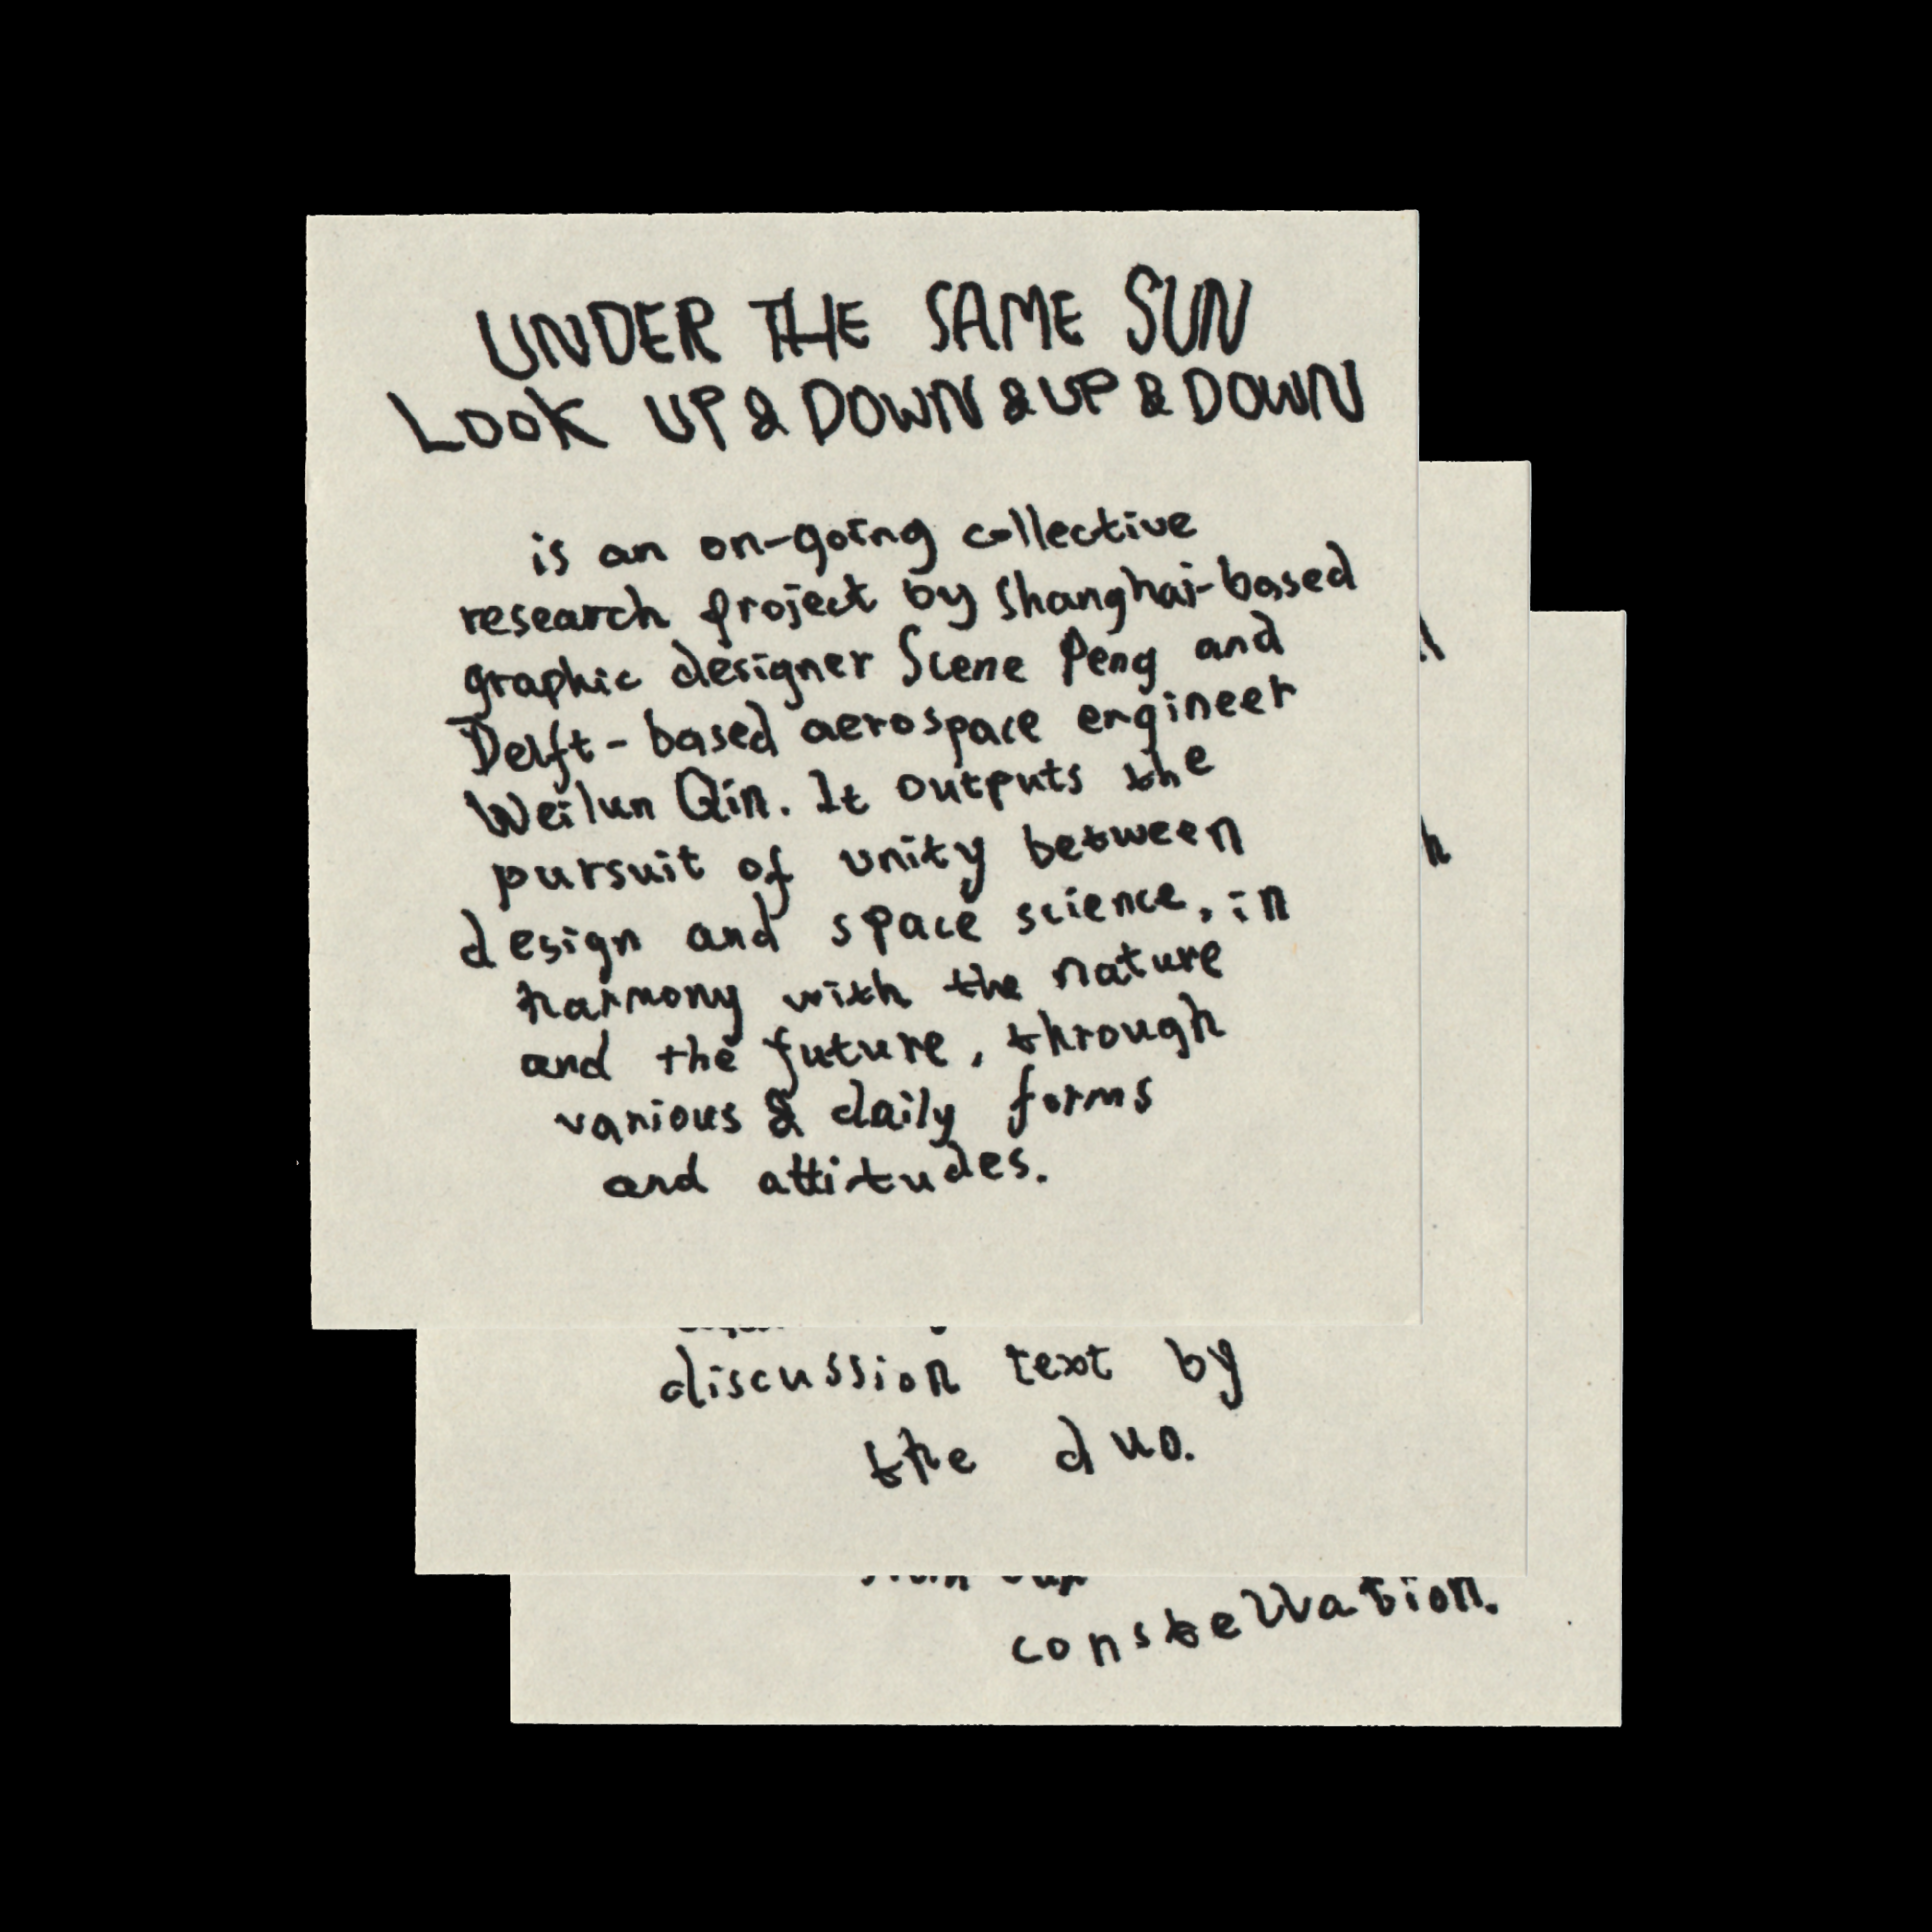 UNDER THE SAME SUN
LOOK UP & DOWN & UP & DOWN
is an on-going collective
research project by Shanghai-based
graphic designer Scene Peng and
Delft-based aerospace engineer
Weilun Qin. It outputs the
pursuit of unity between
design and space science, in
harmony with the nature
and the future, through
various & daily forms
and attitudes.
discussion text by
the duo.
constellation.